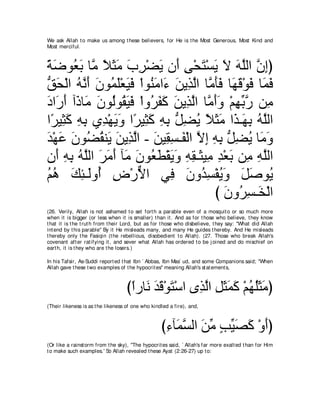 We ask Allah to make us among these believers, for He is the Most Generous, Most Kind and
Most merciful.
إِنَّ اللَّهَ لاَ يَسْتَحْىِ أَن يَضْرِبَ مَثَلاً مَّا بَعُوضَةً
فَمَا فَوْقَهَا فَأَمَّا الَّذِينَ ءَامَنُواْ فَيَعْلَمُونَ أَنَّهُ الْحَقُّ
مِن رَّبِّهِمْ وَأَمَّا الَّذِينَ كَفَرُواْ فَيَقُولُونَ مَاذَآ أَرَادَ
اللَّهُ بِهَـذَا مَثَلاً يُضِلُّ بِهِ كَثِيرًا وَيَهْدِي بِهِ كَثِيرًا
وَمَا يُضِلُّ بِهِ إِلاَّ الْفَـسِقِينَ - الَّذِينَ يَنقُضُونَ عَهْدَ
اللَّهِ مِن بَعْدِ مِيثَـقِهِ وَيَقْطَعُونَ مَآ أَمَرَ اللَّهُ بِهِ أَن
يُوصَلَ وَيُفْسِدُونَ فِي الأَرْضِ أُولَـئِكَ هُمُ
الْخَـسِرُونَ )
(26. Verily, Allah is not ashamed to set forth a parable even of a mosquito or so much more
when it is bigger (or less when it is smaller) than it. And as for those who believe, they know
that it is the truth from their Lord, but as for those who disbelieve, they say: "What did Allah
intend by this parable'' By it He misleads many, and many He guides thereby. And He misleads
thereby only the Fasiqin (the rebellious, disobedient to Allah). (27. Those who break Allah's
covenant after ratifying it, and sever what Allah has ordered to be joined and do mischief on
earth, it is they who are the losers.)
In his Tafsir, As-Suddi reported that Ibn `Abbas, Ibn Mas`ud, and some Companions said; "When
Allah gave these two examples of the hypocrites" meaning Allah's statements,
(مَثَلُهُمْ كَمَثَلِ الَّذِى اسْتَوْقَدَ نَاراً)
(Their likeness is as the likeness of one who kindled a fire), and,
(أَوْ كَصَيِّبٍ مِّنَ السَّمَآءِ)
(Or like a rainstorm from the sky), "The hypocrites said, `Allah's far more exalted than for Him
to make such examples.' So Allah revealed these Ayat (2:26-27) up to: